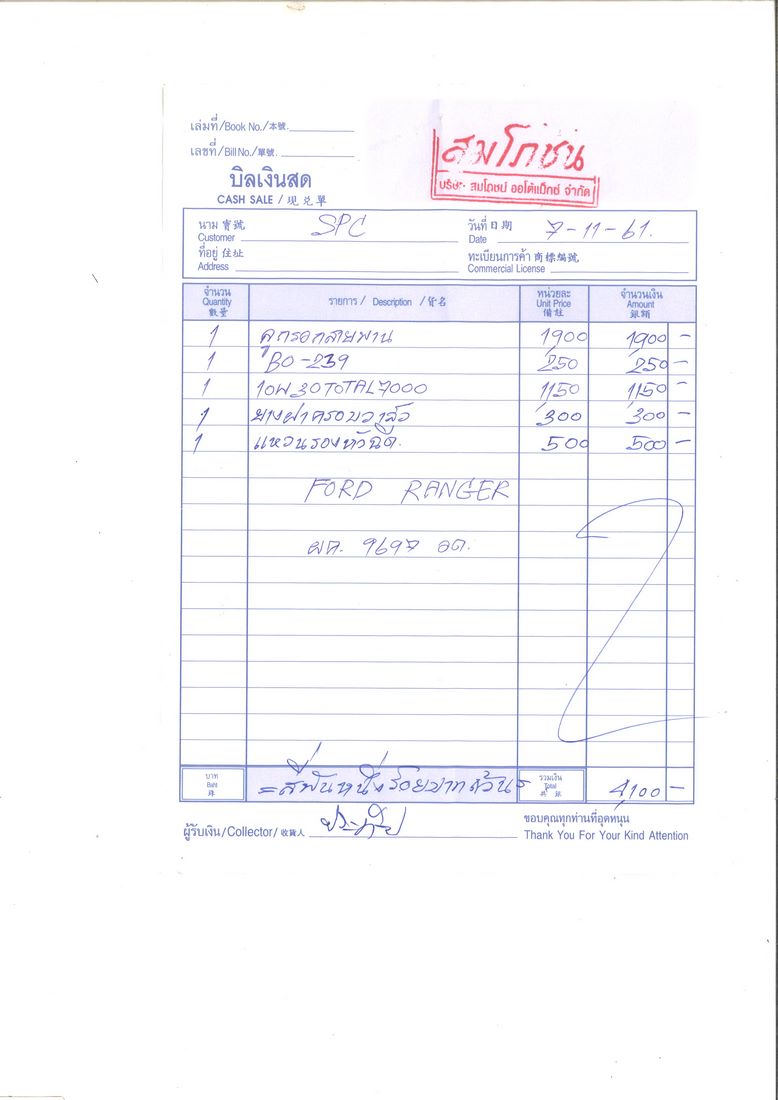 เล่มที่/Book No./本號.
เลขที่/Bill No./單號.
บิลเงินสด
CASH SALE / 現兑單
สมโภชน์
บริษัท สมโภชน์ ออโต้แม็กซ์ จำกัด
นาม 寶號 SPC วันที่ 日期 7-11-61.
Customer Date
ที่อยู่ 住址 ทะเบียนการค้า 商標編號
Address Commercial License
จำนวน หน่วยละ จำนวนเงิน
Quantity รายการ / Description / 貨名 Unit Price Amount
數量 備註 銀額
1 ลูกรอกสายพาน 1900 1900 -
1 BO-239 250 250 -
1 10W30 TOTAL 7000 1150 1150 -
1 ยางฝาครอบวาล์ว 300 300 -
1 แหวนรองหัวฉีด. 500 500 -
FORD RANGER
ผค. 9697 อด.
บาท รวมเงิน
Baht =สี่พันหนึ่งร้อยบาทถ้วน= Total 4,100 -
ขอบคุณทุกท่านที่อุดหนุน
ผู้รับเงิน/Collector/收貨人 Thank You For Your Kind Attention